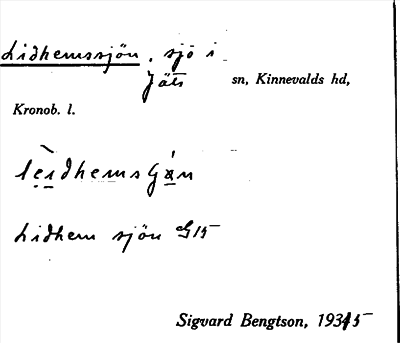 Lidhemssjön, sjö i
Jäts sn, Kinnevalds hd,
Kronob. l.
Lidhem sjön G15
Sigvard Bengtson, 1935